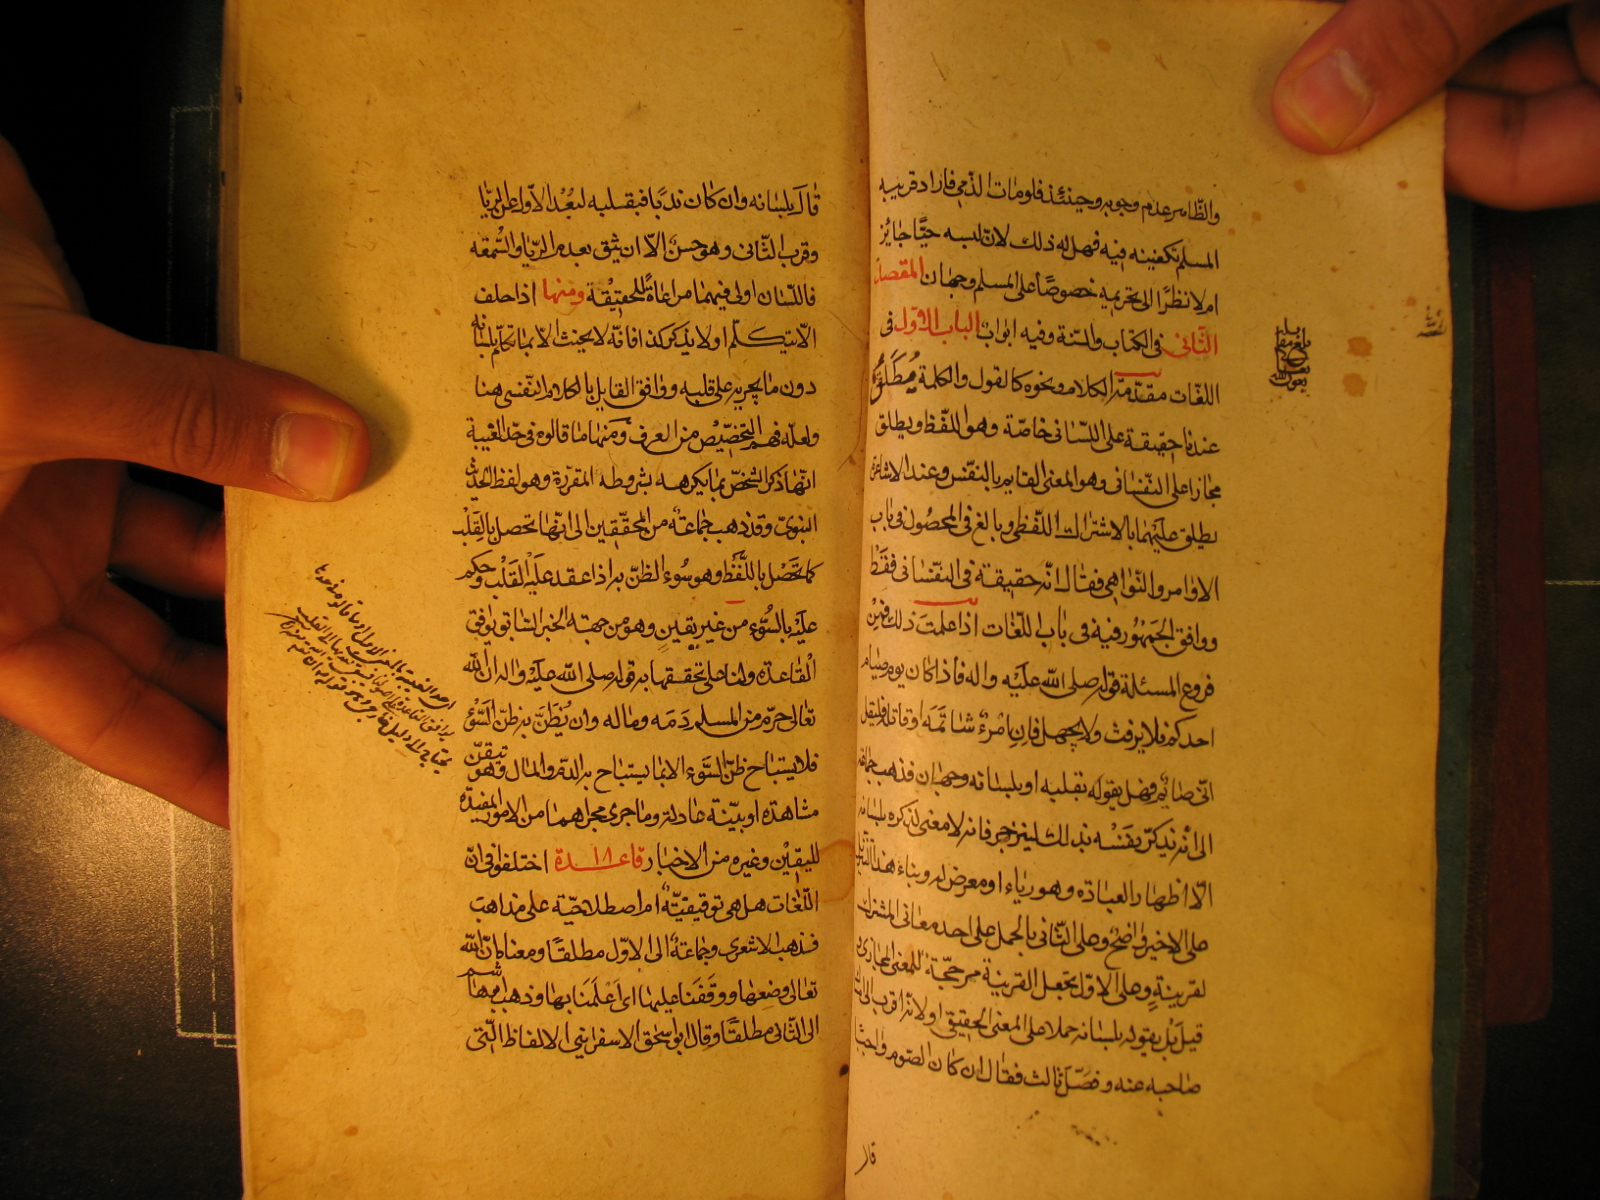 والظاهر عدم وجوبه وحينئذ فلومات الذمي فاراد قريبه
المسلم تكفينه فيه فهل له ذلك لان لبسه حيًّا جائز
ام لا نظرًا الى تحريمه خصوصًا على المسلم وجهان المقصد
الثاني في الكتاب والسنة وفيه ابواب الباب الاول في
اللغات مقدمة الكلام ونحوه كالقول والكلمة يُطلَقُ
عندنا حقيقة على اللساني خاصّة وهو اللفظ ويطلق
مجازا على النفساني وهو المعنى القايم بالنفس وعند الاشاعرة
يطلق عليهما بالاشتراك اللفظي وبالغ في المحصول في باب
الاوامر والنواهي فقال انه حقيقة في النفساني فقط
ووافق الجمهور فيه في باب اللغات اذا علمت ذلك فمِنْ
فروع المسئلة قوله صلى الله عليه واله فاذا كان يوم صيام
احدكم فلا يرفث ولا يجهل فان امرءٌ شاتمه او قاتله فليقل
اني صائم فهل يقوله بقلبه او بلسانه وجهان فذهب جماعة
الى أنه يذكّر نفسه بذلك لينزجر فانه لا معنى لذكره بلسانه
الّا اظهار العبادة وهو رياء او معرض له وبناء هذا القائل
على الاخير واضح وعلى الثاني بالحمل على احد معاني المشترك
لقرينةٍ وعلى الاول بجعل القرينة مرجحة للمعنى المجازي و
قيل بل يقوله بلسانه حملا على المعنى الحقيقي او لانه اقرب الى
صاحبه عنه وفصّل ثالث فقال ان كان الصوم واجبًا
قال
قال بلسانه وان كان ندبًا فبقلبه لبُعْد الاول عن الريا
وقرب الثاني وهو حسنٌ الّا ان يثق بعدم الريا والسُّمعه
فاللسان اولى فيهما مراعاةً للحقيقة ومنها اذا حلف
الّا يتكلّم او لا يذكر كذا فانه لا يحنث الّا بما تكلّم بلسانه
دون ما يجريه على قلبه ووافق القايل بالكلام النفسي هنا
ولعلّه فهم التخصيص من العرف ومنها ما قالوه في حدّ الغيبة
انها ذكر الشخص بما يكرهه بشروطه المقررة وهو لفظ الحديث
النبوي وقد ذهب جماعةٌ من المحققين الى انها تحصل بالقلب
كما تحصل باللفظ وهو سوء الظنّ به اذا عقد عليه القلب وحكم
عليه بالسّوء من غير يقين وهو من جهة الخبر السّابق يوافق
القاعدة ولنا على تحققها به قوله صلى الله عليه واله ان الله
تعالى حرّم من المسلم دَمَه وماله وان يُظَنَّ به ظنّ السّوء
فلا يستباح ظنّ السّوء الا بما يستباح به الدم والمال وهو تيقن
مشاهدة او بيّنة عادلة وما جرى مجراهما من الامور المفيدة
لليقين وغيره من الاخبار قاعدة ١٨ اختلفوا في انّ
اللغات هل هي توقيفيّةٌ ام اصطلاحيّة على مذاهب
فذهب الاشعري وجماعة الى الاول مطلقًا ومعناه ان الله
تعالى وضعها ووقفنا عليها اي اعلمنا بها وذهب ابوهاشم
الى الثاني مطلقًا وقال ابو اسحق الاسفرايني الالفاظ التي